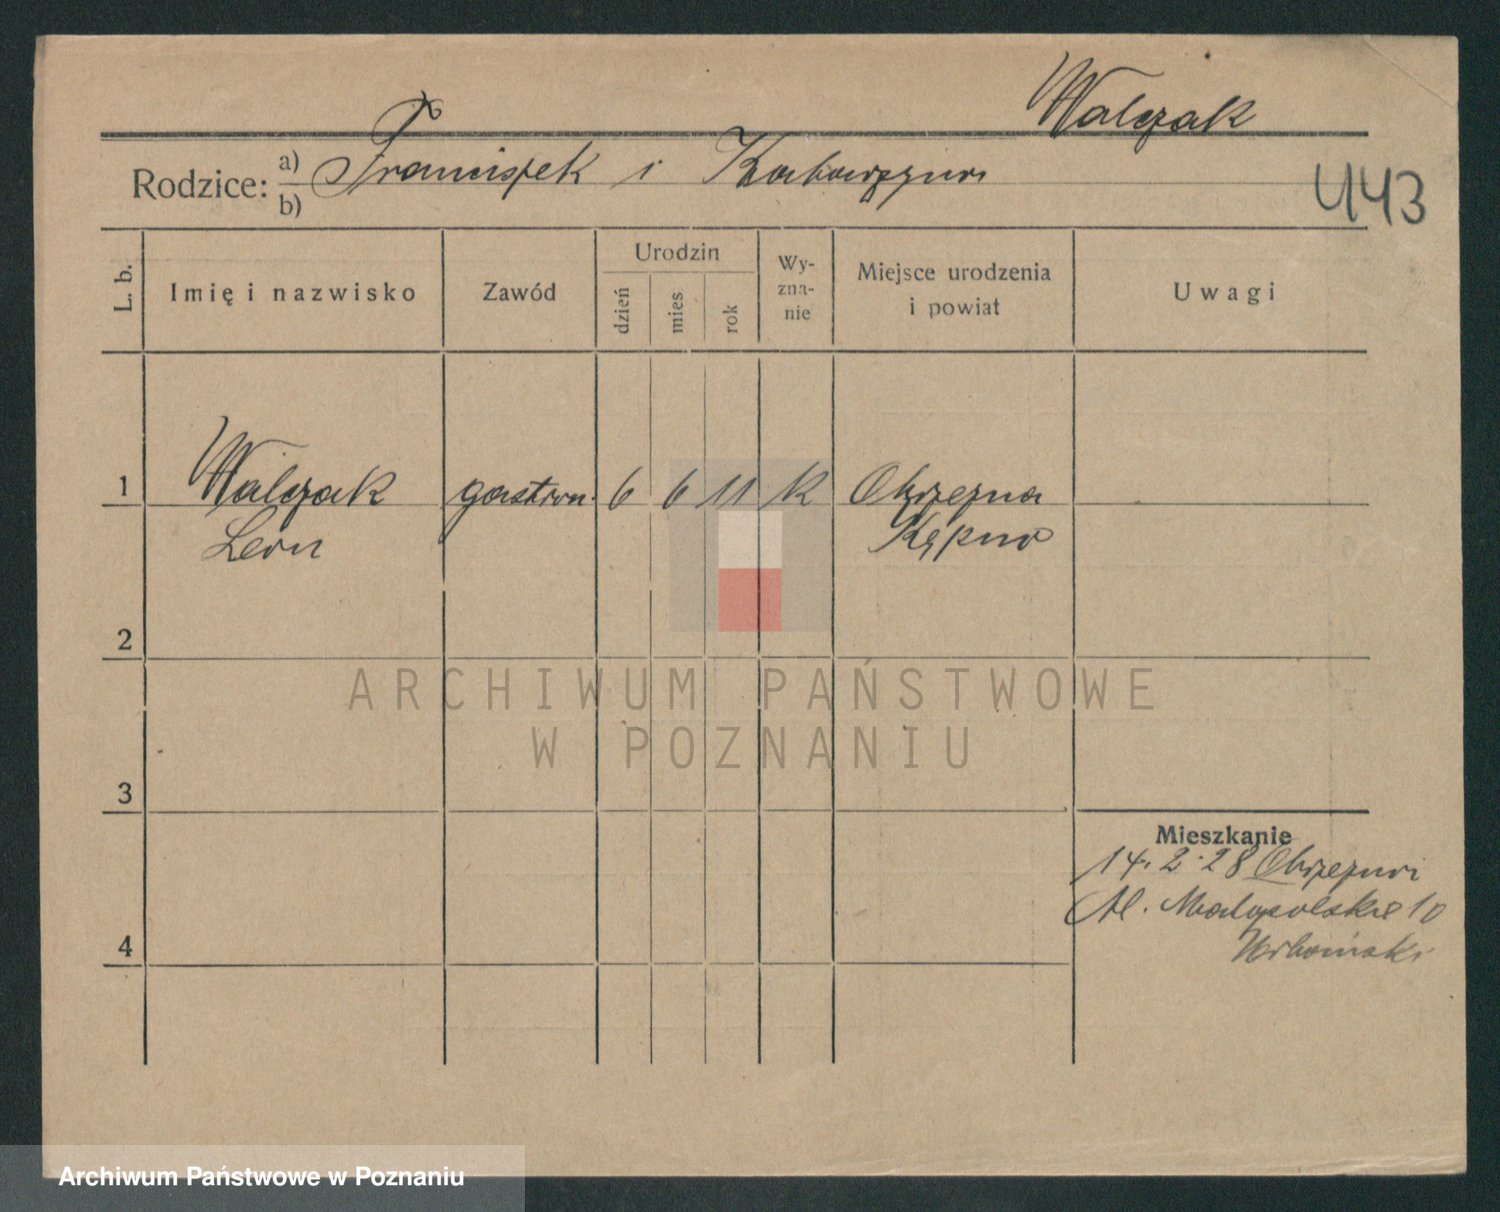 Walczak
Rodzice: a) Franciszek i Katarzyna
b)
443
L. b.
Imię i nazwisko
Zawód
Urodzin
dzień
mies
rok
Wy-
zna-
nie
Miejsce urodzenia
i powiat
Uwagi
1 Walczak gastron. 6 6 11 K
Leon Kępno
2
3
4
Mieszkanie
14. 2. 28
Al. Małopolskie 10
Urbański
ARCHIWUM PAŃSTWOWE
W POZNANIU
Archiwum Państwowe w Poznaniu